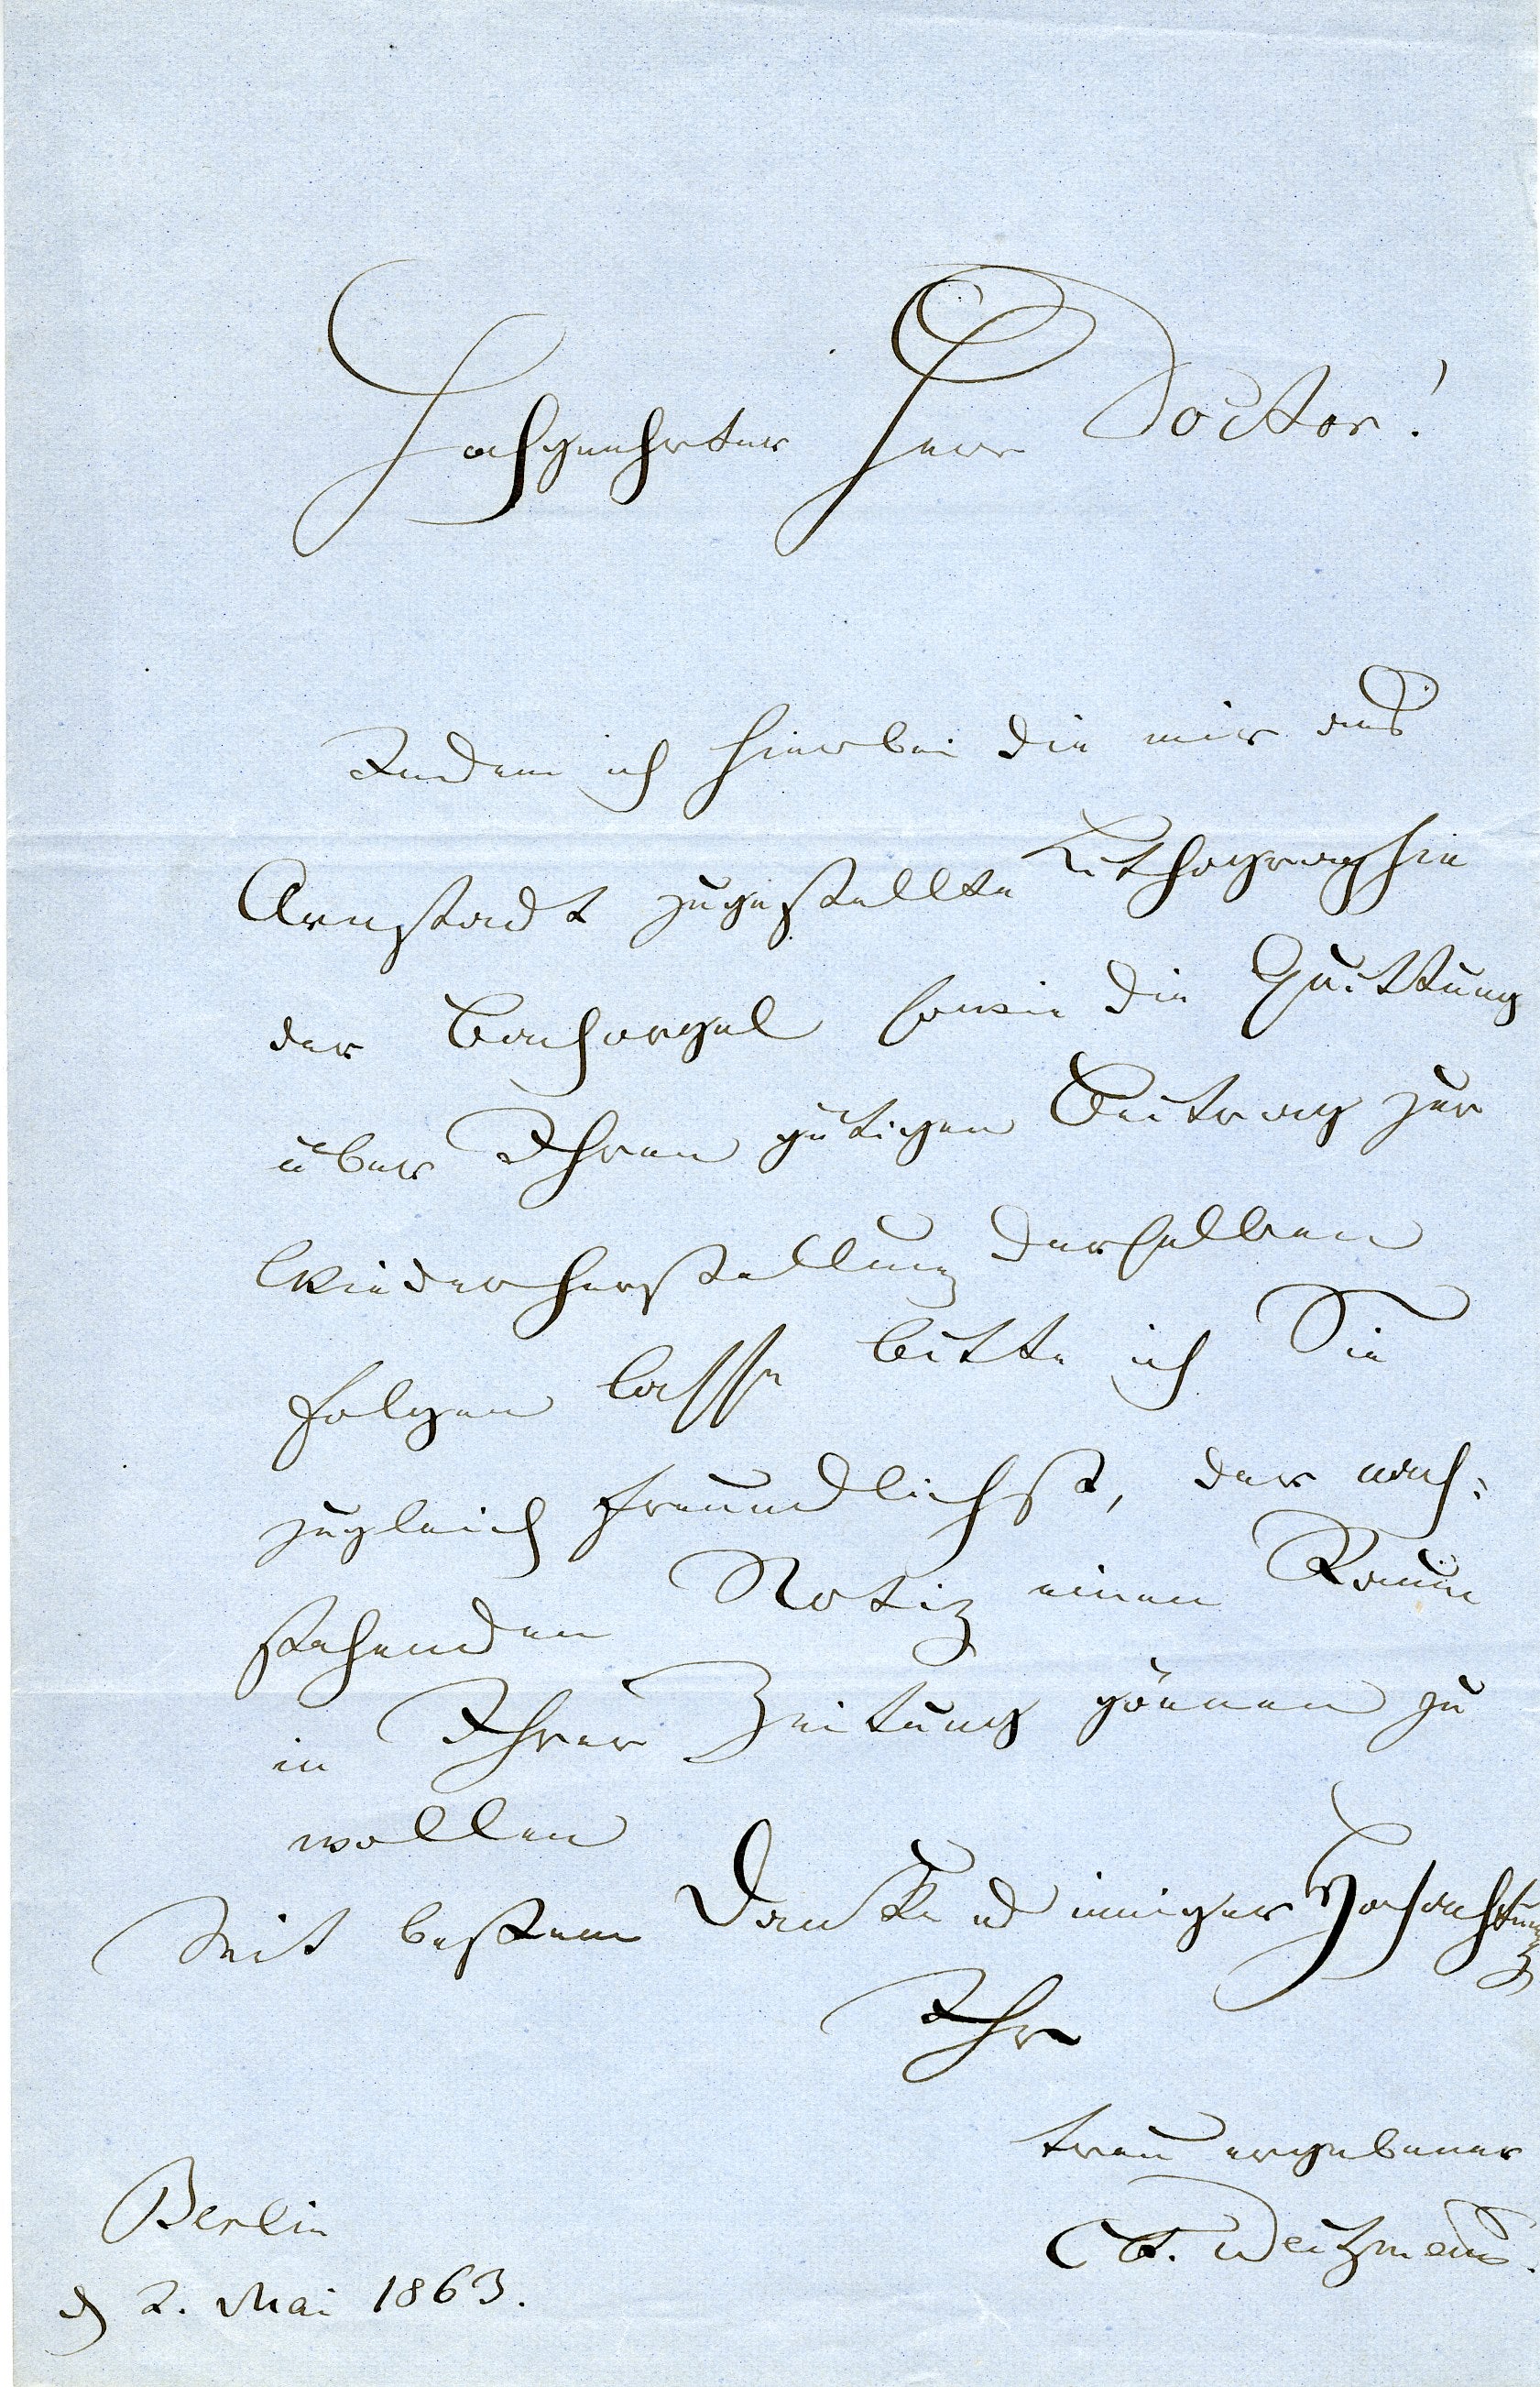 Hochgeehrter Herr Doctor!
Indem ich hierbei die mir aus
Arnstadt zugestellte Lithographie
der Bachorgel sowie die Quittung
über Ihren gütigen Beitrag zur
Wiederherstellung derselben
folgen lasse bitte ich Sie
zugleich freundlichst, der nach=
stehenden Notiz einen Raum
in Ihrer Zeitung gönnen zu
wollen
Mit bestem Danke u inniger Hochachtung
Ihr
treu ergebener
C F. Weitzmann.
Berlin
d 2. Mai 1863.